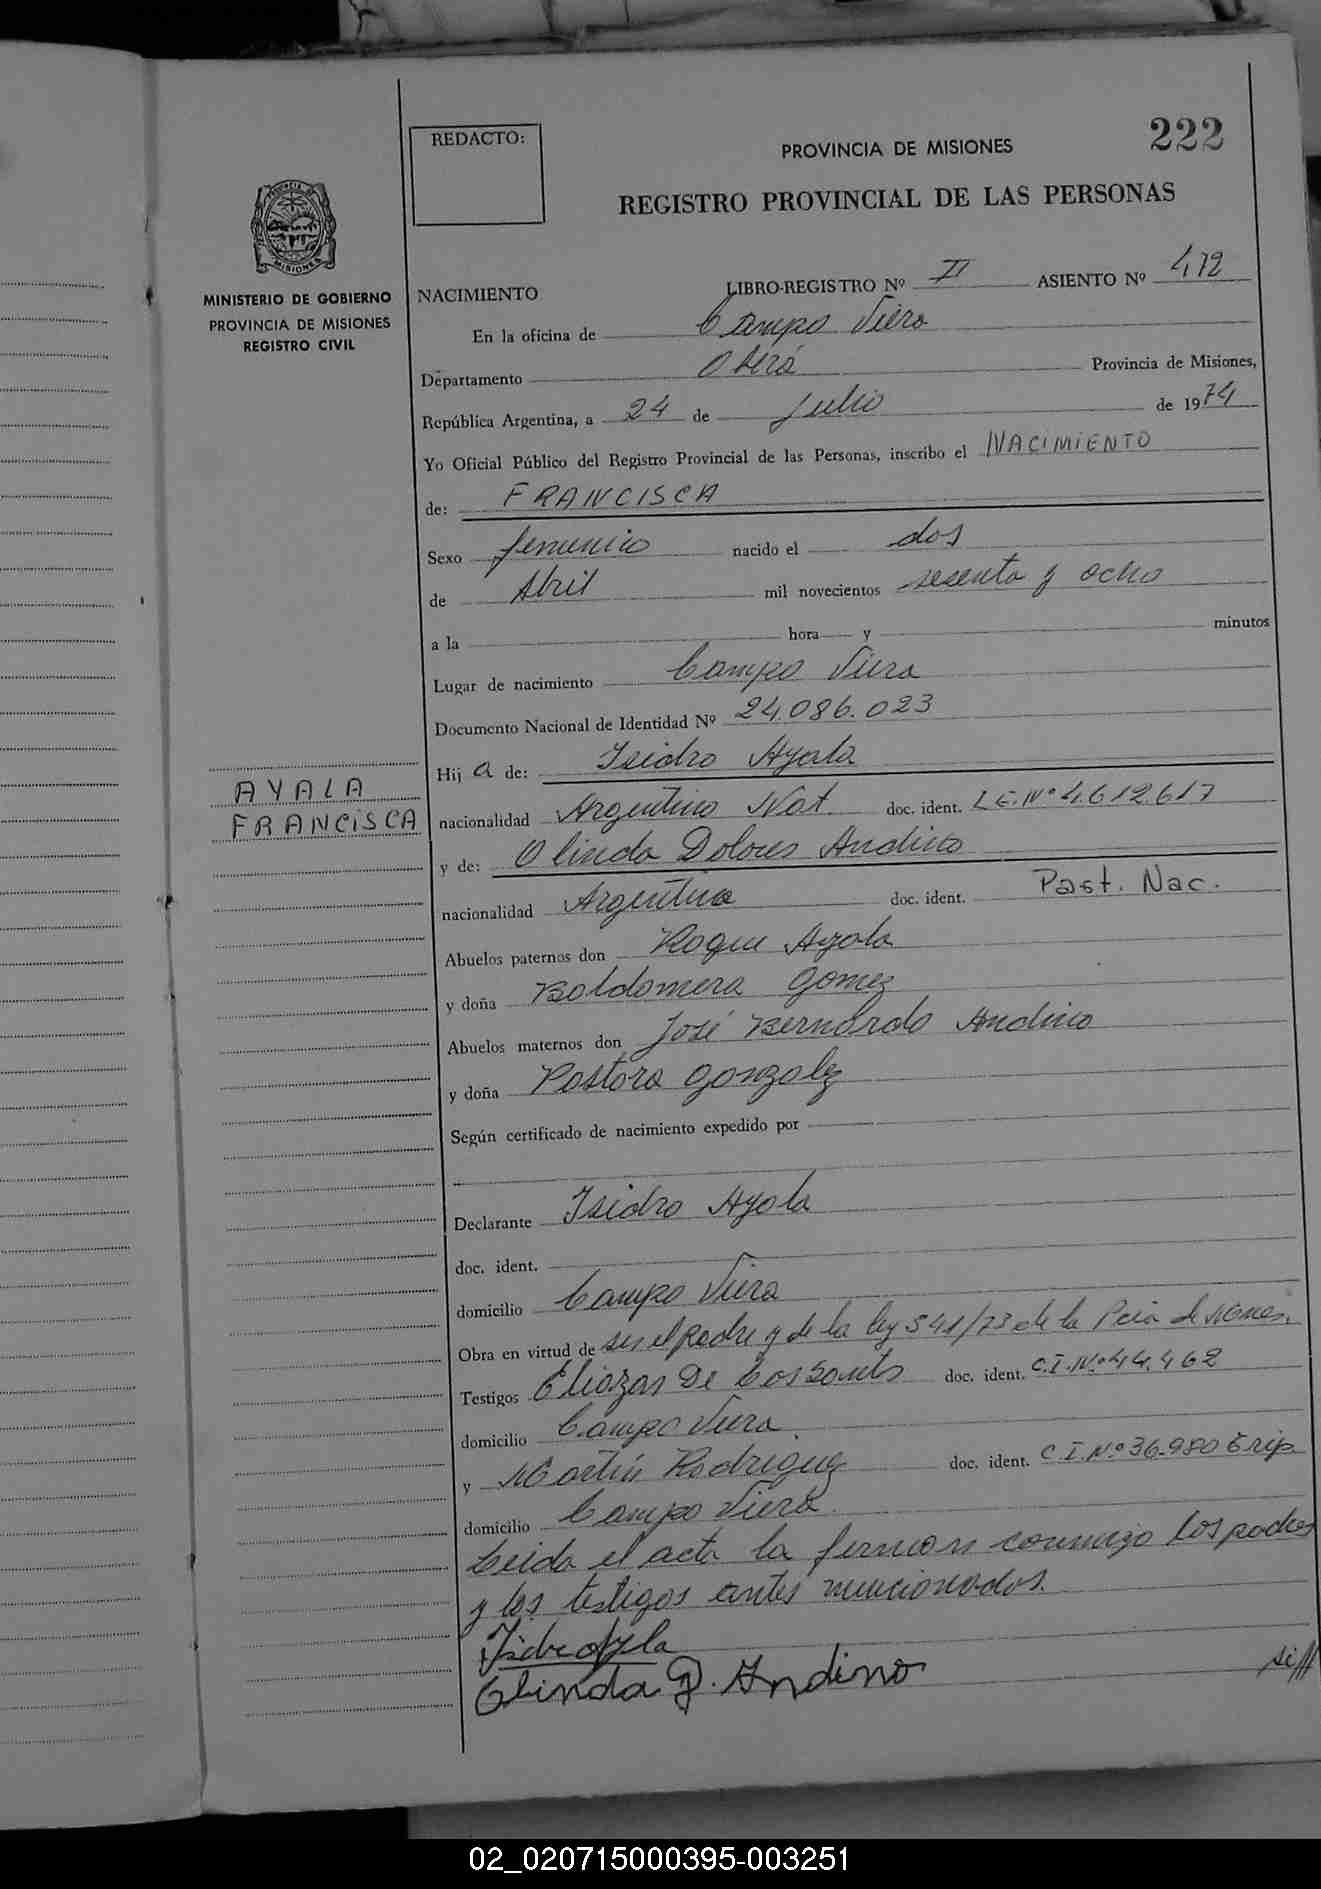 222
REDACTO:
PROVINCIA DE MISIONES
REGISTRO PROVINCIAL DE LAS PERSONAS
MISIONES
MINISTERIO DE GOBIERNO
PROVINCIA DE MISIONES
REGISTRO CIVIL
NACIMIENTO LIBRO-REGISTRO Nº II ASIENTO Nº 472
En la oficina de Campo Viera
Departamento Oberá Provincia de Misiones,
República Argentina, a 24 de Julio de 1974
Yo Oficial Público del Registro Provincial de las Personas, inscribo el NACIMIENTO
de: FRANCISCA
Sexo femenino nacido el dos
de Abril mil novecientos sesenta y ocho
a la hora y minutos
Lugar de nacimiento Campo Viera
Documento Nacional de Identidad Nº 24.086.023
Hij a de: Isidro Ayala
AYALA
FRANCISCA
nacionalidad Argentino Nat doc. ident. L.E. Nº 4.612.617
y de: Olinda Dolores Andino
nacionalidad Argentina doc. ident. Past. Nac.
Abuelos paternos don Roque Ayala
y doña Baldomera Gomez
Abuelos maternos don José Bernardo Andino
y doña Pastora Gonzalez
Según certificado de nacimiento expedido por
Declarante Isidro Ayala
doc. ident.
domicilio Campo Viera
Obra en virtud de ser el padre y de la ley 541/73 de la Pcia de
Testigos Eliazar De doc. ident. C.I. Nº 44.462
domicilio Campo Viera
y Martin Rodriguez doc. ident. C.I. Nº 36.980
domicilio Campo Viera
Leida el acta la firman conmigo los padres
y los testigos antes mencionados.
Olinda D. Andino
02_020715000395-003251